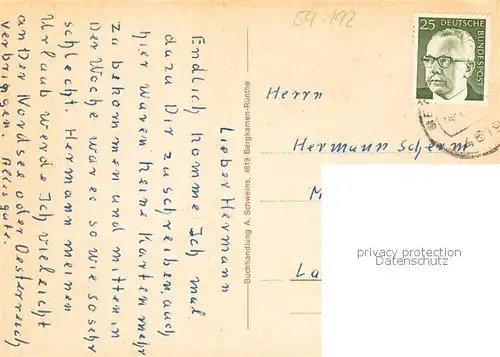 Lieber Hermann
Endlich komme Ich mal
dazu Dir zu schreiben, auch
hier waren keine Karten mehr
zu bekommen und mitten in
Der Woche war es so wie so sehr
schlecht. Hermann meinen
Urlaub werde Ich vieleicht
an der Nordsee oder Oesterreich
verbringen. Alles gute.
59 192
Buchhandlung A. Schweins, 4619 Bergkamen-Rünthe
25 DEUTSCHE
BUNDESPOST
Herrn
Hermann Scherm
M
La
privacy protection
Datenschutz